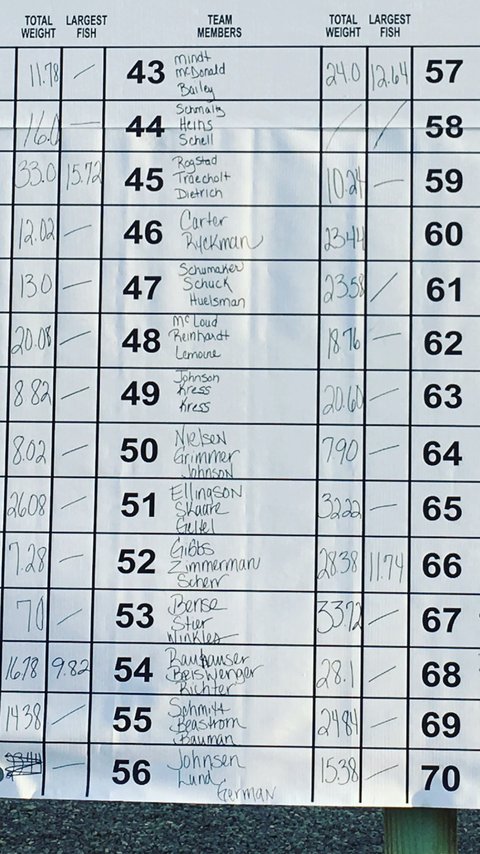 TOTAL WEIGHT LARGEST FISH TEAM MEMBERS TOTAL WEIGHT LARGEST FISH
11.78 — 43 Mindt McDonald Bailey 24.0 12.64 57
16.0 — 44 Schmaltz Heins Schell / / 58
33.0 15.72 45 Rogstad Traecholt Dietrich 10.24 — 59
12.02 — 46 Carter Ryckman 23.44 60
13.0 — 47 Schumaker Schuck Huelsman 23.58 / 61
20.08 — 48 McLoud Reinhardt Lemoine 18.76 — 62
8.82 — 49 Johnson Kress Kress 20.60 — 63
8.02 — 50 Nielsen Grimmer Johnson 7.90 — 64
26.08 — 51 Ellingson Skaare Geltel 32.22 — 65
7.28 — 52 Gibbs Zimmerman Scherr 28.38 11.74 66
70 — 53 Bense Stier Winkler 33.72 — 67
16.78 9.82 54 Bauhauser Beiswenger Richter 28.1 — 68
14.38 — 55 Schmitt Beastrom Bauman 24.84 — 69
— 56 Johnsen Lund German 15.38 — 70